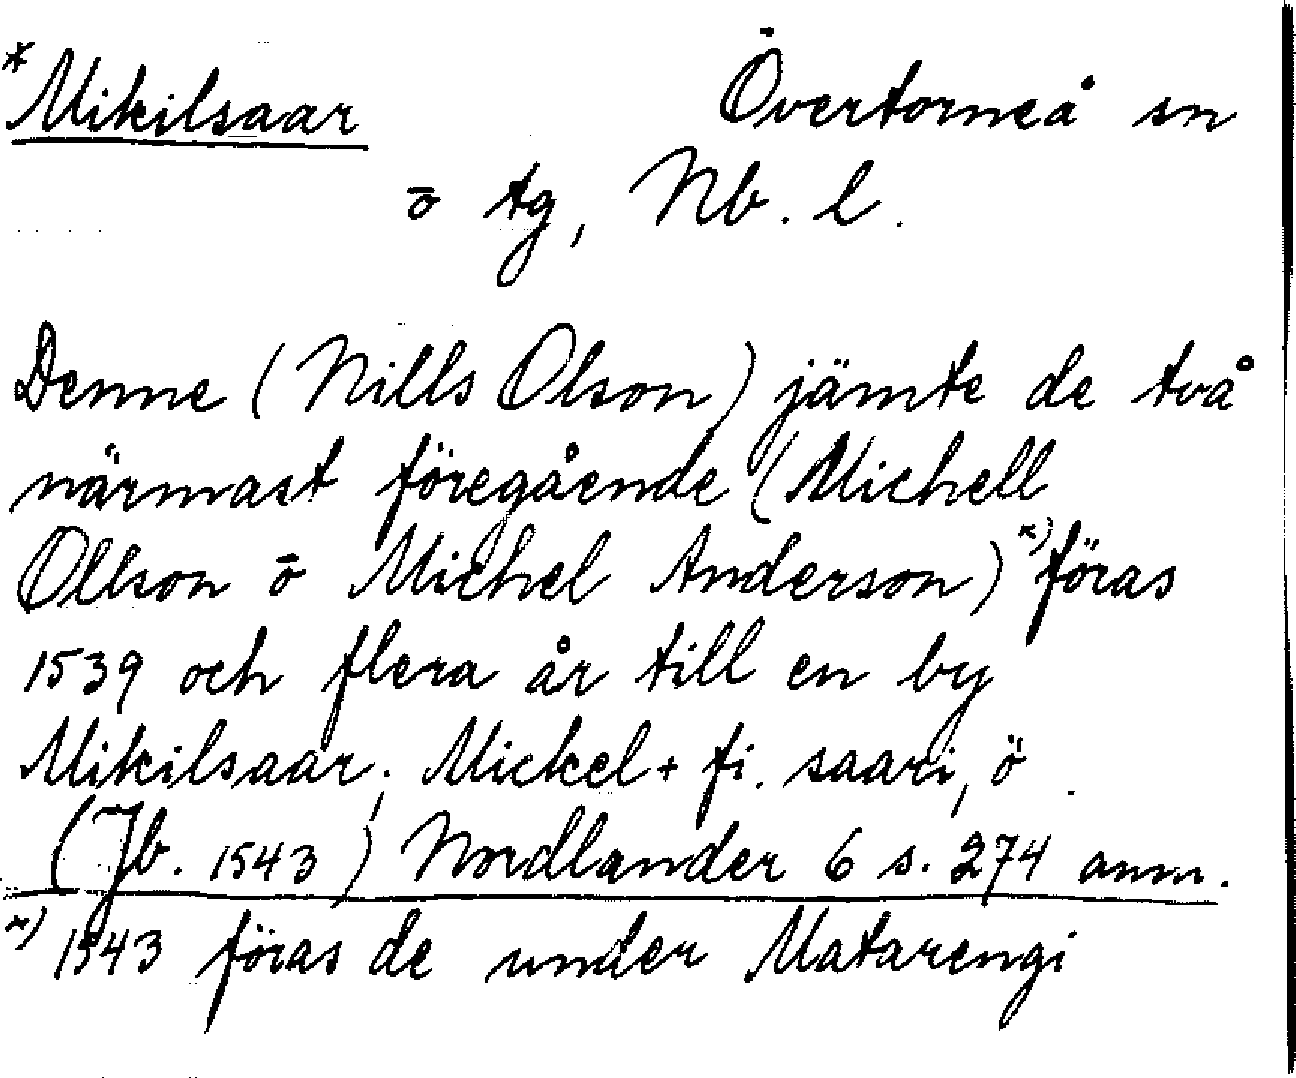 *Mikilsaar Övertorneå sn
ō tg, Nb. l.
Denne (Nills Olson) jämte de två
närmast föregående (Michell
Ollson ō Michel Anderson) *) föras
1539 och flera år till en by
Mikilsaar; Mickel + fi. saari, ö.
(Jb. 1543) Nordlander 6 s. 274 anm.
*) 1543 föras de under Matarengi